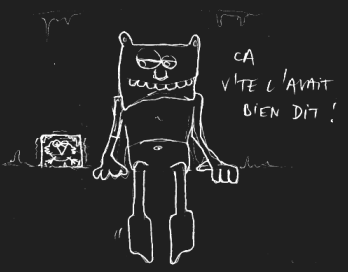 CA
V'TE L'AVAIT
BIEN DIT !